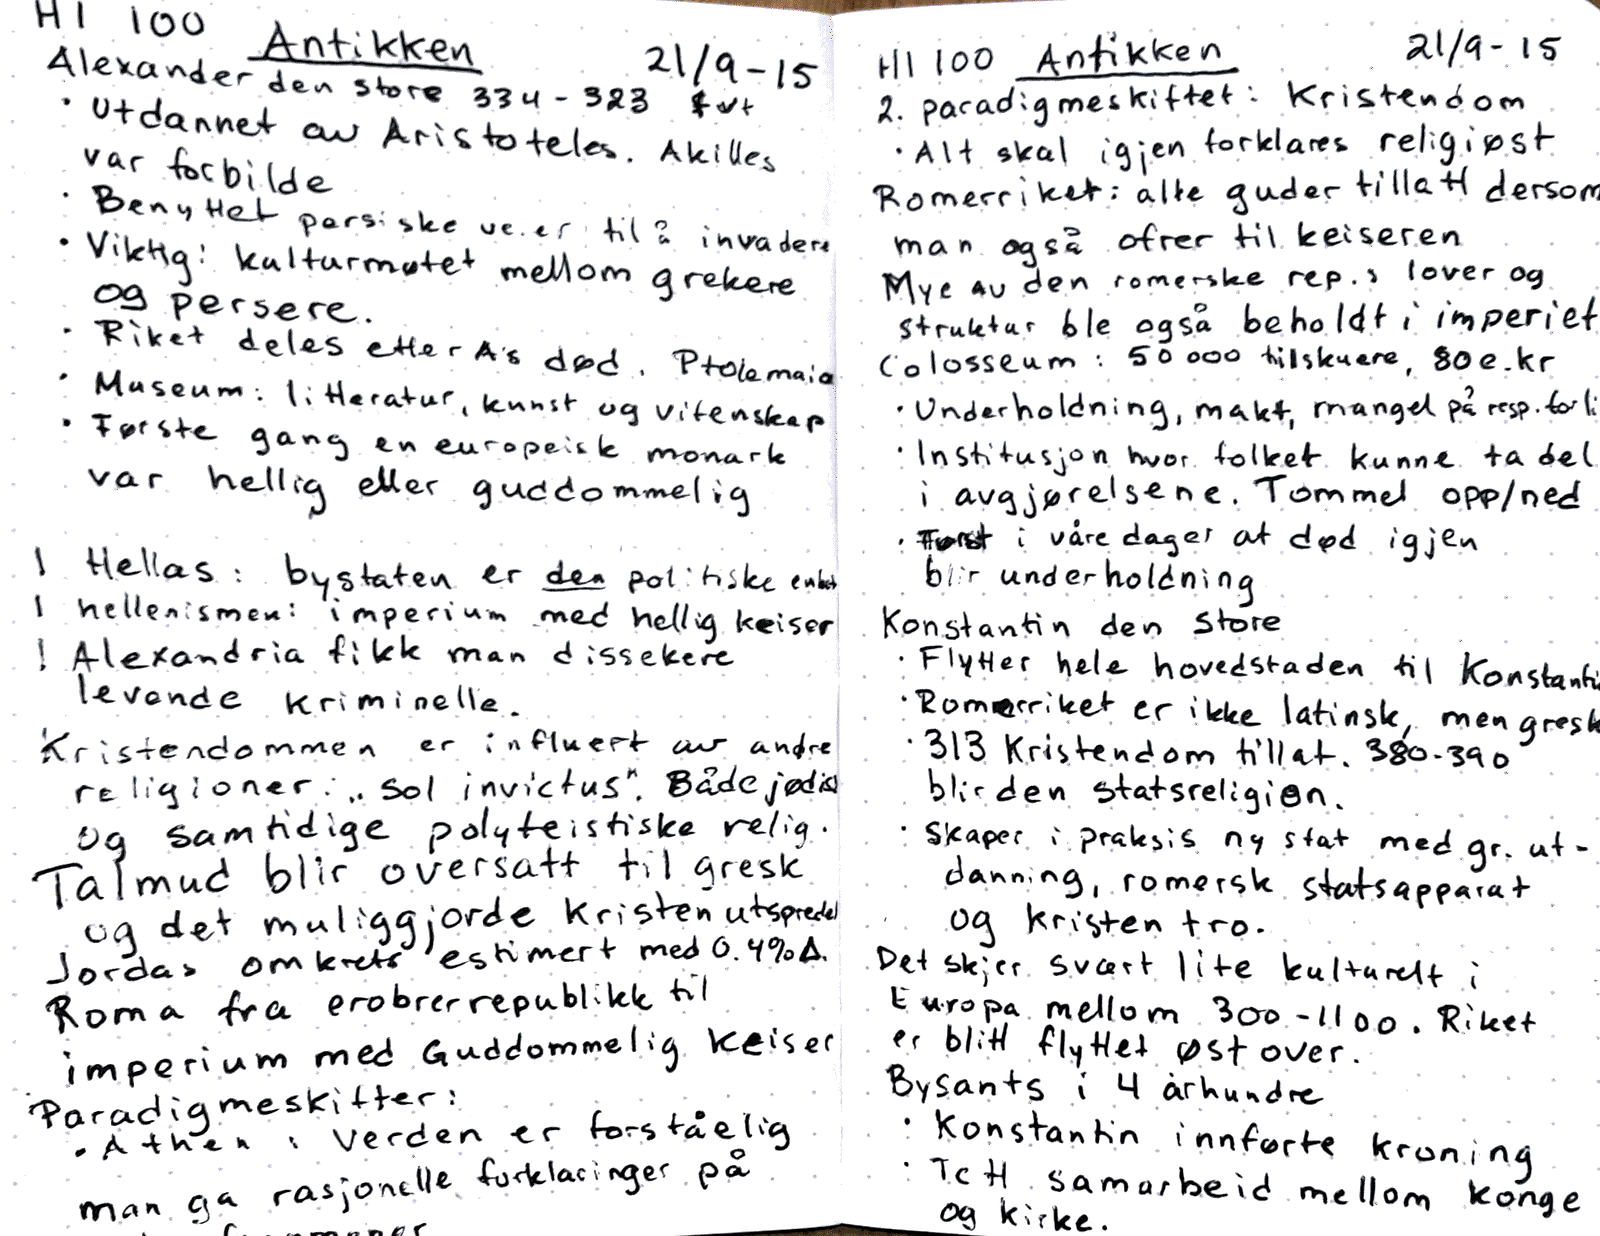 HI 100
Antikken
21/9-15
Alexander den store 334-323 fvt
· Utdannet av Aristoteles. Akilles
var forbilde
· Benyttet persiske veier til å invadere
· Viktig: kulturmøtet mellom grekere
og persere.
· Riket deles etter A's død. Ptolemaio
· Museum: litteratur, kunst og vitenskap
· Første gang en europeisk monark
var hellig eller guddommelig
I Hellas: bystaten er den politiske enhet
I hellenismen: imperium med hellig keiser
I Alexandria fikk man dissekere
levende kriminelle.
Kristendommen er influert av andre
religioner: „sol invictus". Både jødisk
og samtidige polyteistiske relig.
Talmud blir oversatt til gresk
og det muliggjorde kristen utspredel
Jordas omkrets estimert med 0.4% Δ.
Roma fra erobrerrepublikk til
imperium med Guddommelig keiser
Paradigmeskifter:
· Athen: Verden er forståelig
man ga rasjonelle forklaringer på
HI 100 Antikken 21/9-15
2. paradigmeskiftet: Kristendom
· Alt skal igjen forklares religiøst
Romerriket: alle guder tillatt dersom
man også ofrer til keiseren
Mye av den romerske rep.s lover og
struktur ble også beholdt i imperiet
Colosseum: 50 000 tilskuere, 80 e.kr
· Underholdning, makt, mangel på resp. for li
· Institusjon hvor folket kunne ta del
i avgjørelsene. Tommel opp/ned
· Først i våre dager at død igjen
blir underholdning
Konstantin den Store
· Flytter hele hovedstaden til Konstanti
· Romerriket er ikke latinsk, men gresk
· 313 Kristendom tillat. 380-390
blir den statsreligion.
· Skaper i praksis ny stat med gr. ut-
danning, romersk statsapparat
og kristen tro.
Det skjer svært lite kulturelt i
Europa mellom 300-1100. Riket
er blitt flyttet øst over.
Bysants i 4 århundre
· Konstantin innførte kroning
· Tett samarbeid mellom konge
og kirke.